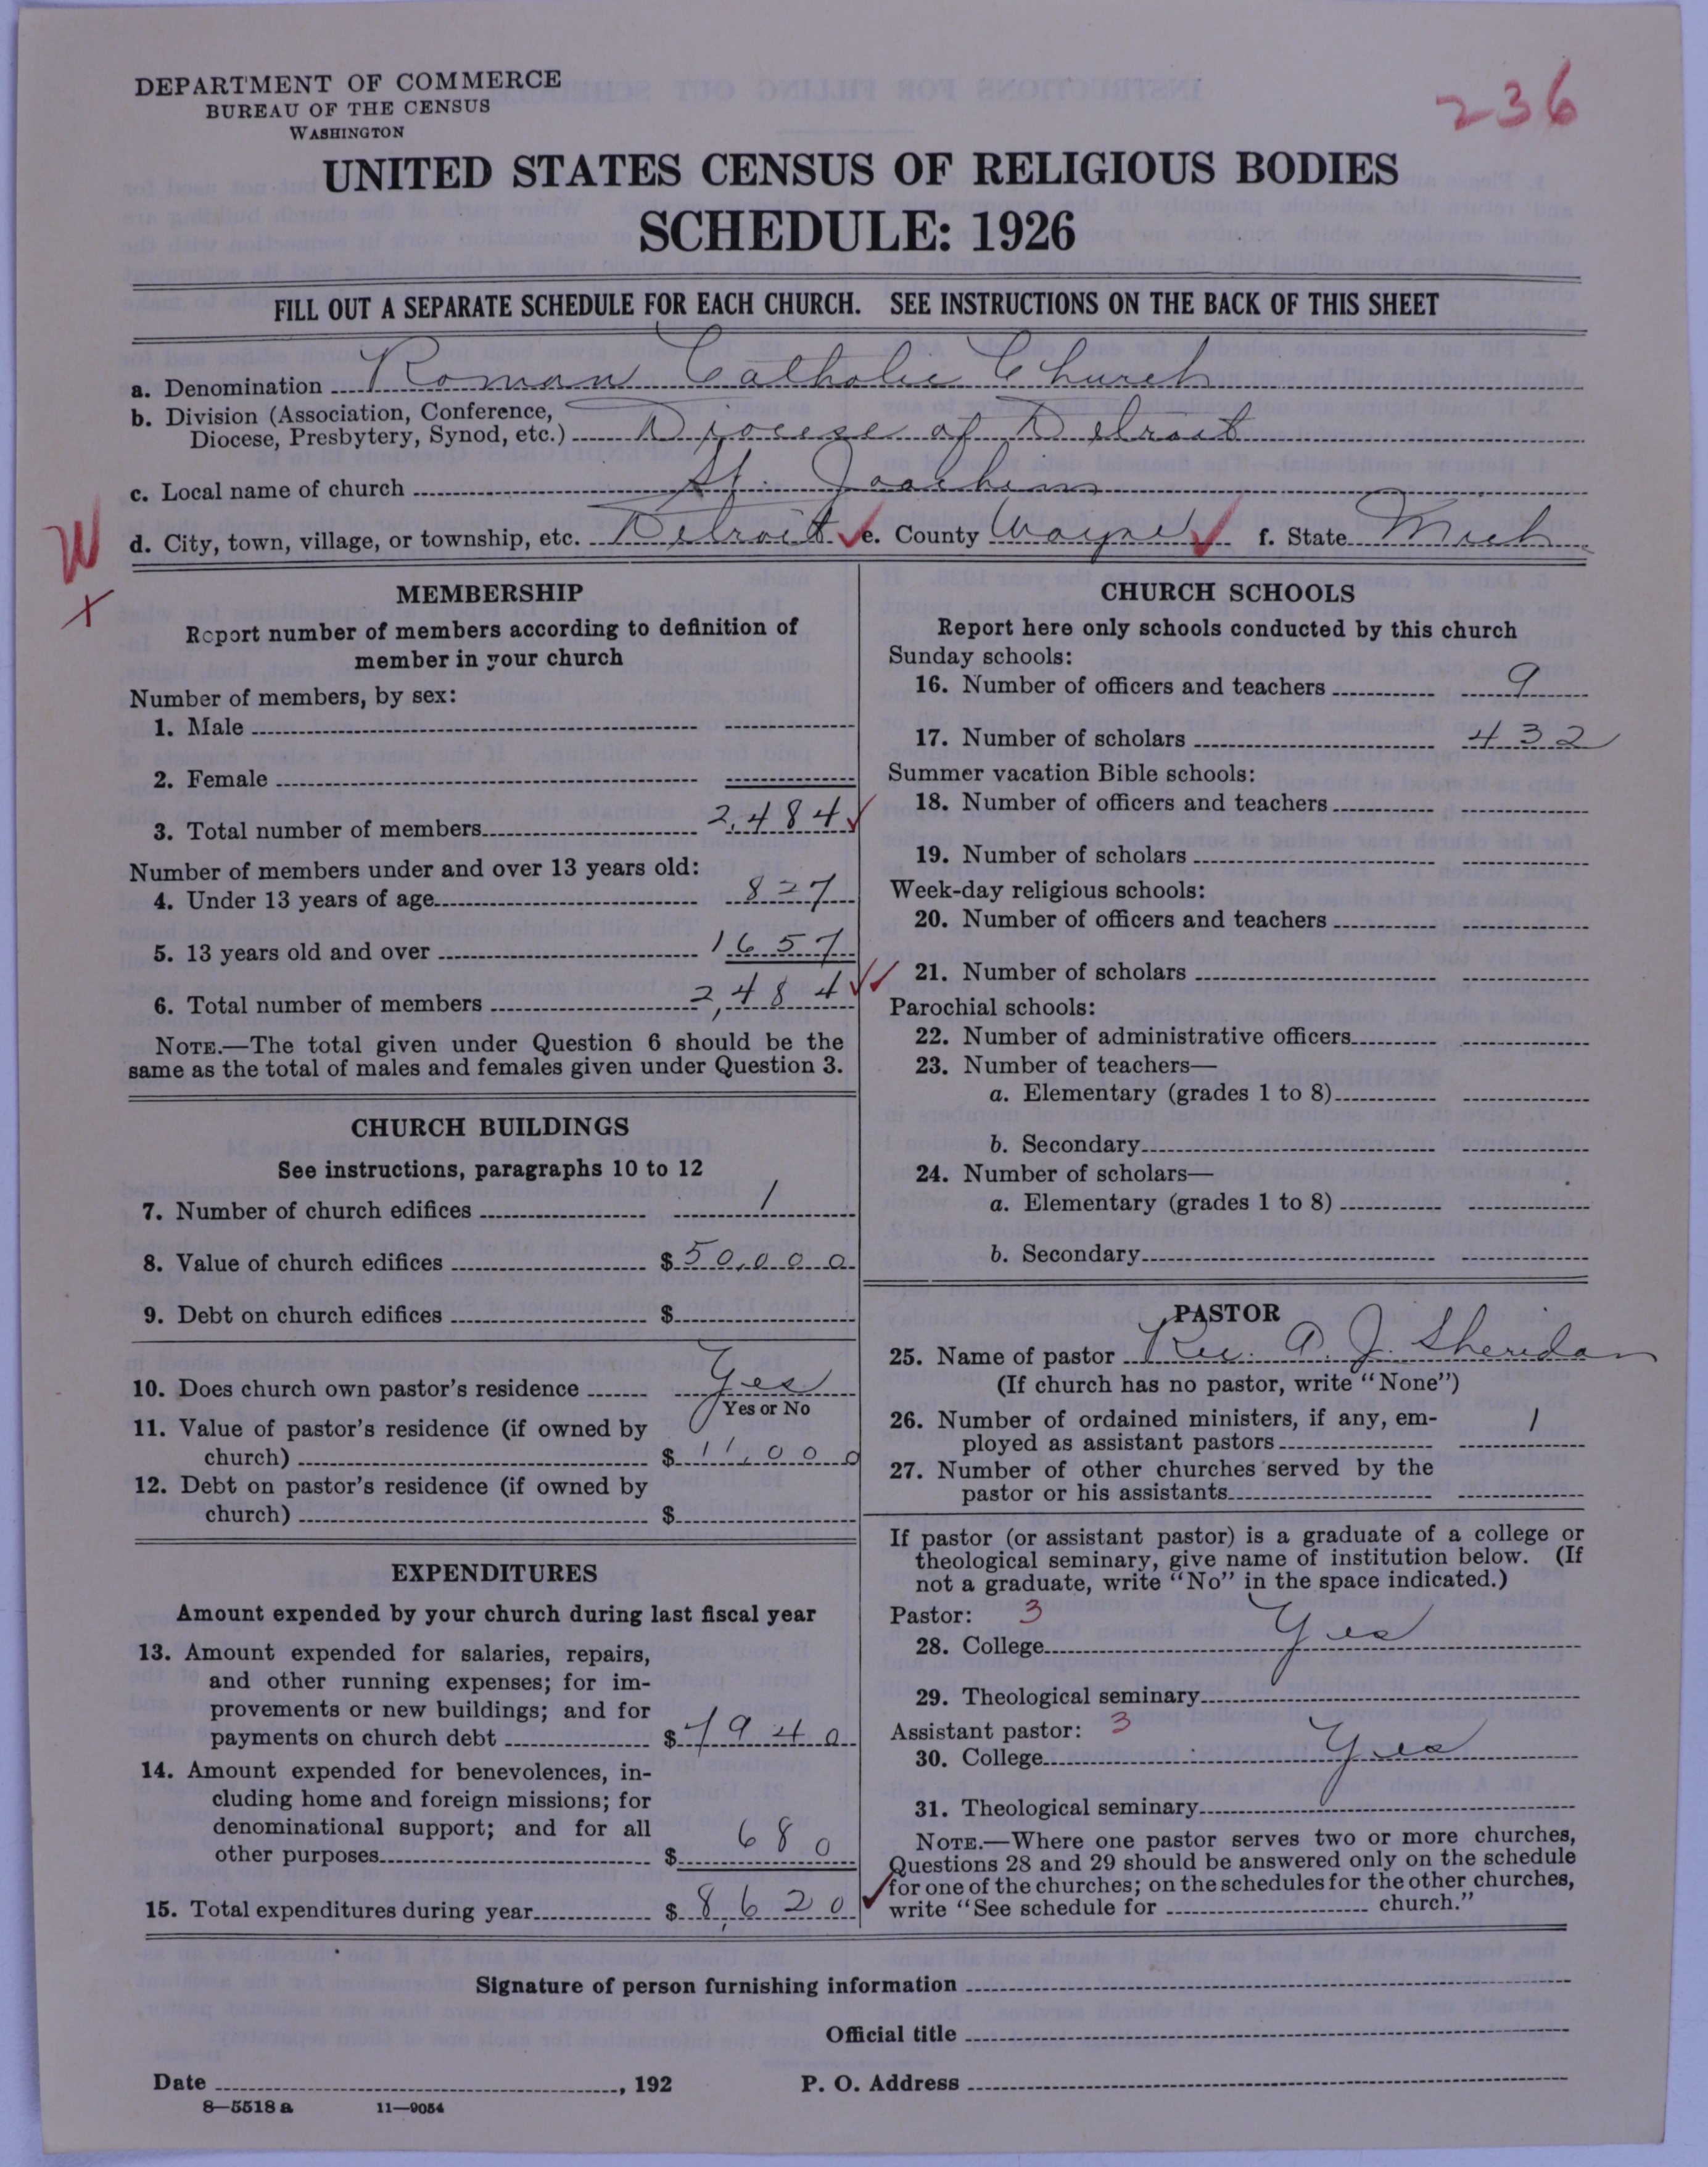 DEPARTMENT OF COMMERCE
BUREAU OF THE CENSUS
WASHINGTON
236
UNITED STATES CENSUS OF RELIGIOUS BODIES
SCHEDULE: 1926
FILL OUT A SEPARATE SCHEDULE FOR EACH CHURCH. SEE INSTRUCTIONS ON THE BACK OF THIS SHEET
a. Denomination Roman Catholic Church
b. Division (Association, Conference,
Diocese, Presbytery, Synod, etc.) Diocese of Detroit
c. Local name of church St. Joachims
W
d. City, town, village, or township, etc. Detroit ✓ e. County Wayne ✓ f. State Mich.
X
MEMBERSHIP
Report number of members according to definition of
member in your church
Number of members, by sex:
1. Male
2. Female
3. Total number of members 2,484 ✓
Number of members under and over 13 years old:
4. Under 13 years of age 827
5. 13 years old and over 1657
6. Total number of members 2,484 ✓✓
NOTE.—The total given under Question 6 should be the
same as the total of males and females given under Question 3.
CHURCH BUILDINGS
See instructions, paragraphs 10 to 12
7. Number of church edifices 1
8. Value of church edifices $50,000
9. Debt on church edifices $
10. Does church own pastor's residence Yes
Yes or No
11. Value of pastor's residence (if owned by
church) $11,000
12. Debt on pastor's residence (if owned by
church) $
EXPENDITURES
Amount expended by your church during last fiscal year
13. Amount expended for salaries, repairs,
and other running expenses; for im-
provements or new buildings; and for
payments on church debt $7940
14. Amount expended for benevolences, in-
cluding home and foreign missions; for
denominational support; and for all
other purposes $680
15. Total expenditures during year $8,620 ✓
CHURCH SCHOOLS
Report here only schools conducted by this church
Sunday schools:
16. Number of officers and teachers 9
17. Number of scholars 432
Summer vacation Bible schools:
18. Number of officers and teachers
19. Number of scholars
Week-day religious schools:
20. Number of officers and teachers
21. Number of scholars
Parochial schools:
22. Number of administrative officers
23. Number of teachers—
a. Elementary (grades 1 to 8)
b. Secondary
24. Number of scholars—
a. Elementary (grades 1 to 8)
b. Secondary
PASTOR
25. Name of pastor Rev. A. J. Sheridan
(If church has no pastor, write "None")
26. Number of ordained ministers, if any, em-
ployed as assistant pastors 1
27. Number of other churches served by the
pastor or his assistants
If pastor (or assistant pastor) is a graduate of a college or
theological seminary, give name of institution below. (If
not a graduate, write "No" in the space indicated.)
Pastor: 3
28. College Yes
29. Theological seminary
Assistant pastor: 3
30. College Yes
31. Theological seminary
NOTE.—Where one pastor serves two or more churches,
Questions 28 and 29 should be answered only on the schedule
for one of the churches; on the schedules for the other churches,
write "See schedule for church."
Signature of person furnishing information
Official title
Date , 192 P. O. Address
8—5518 a 11—9054